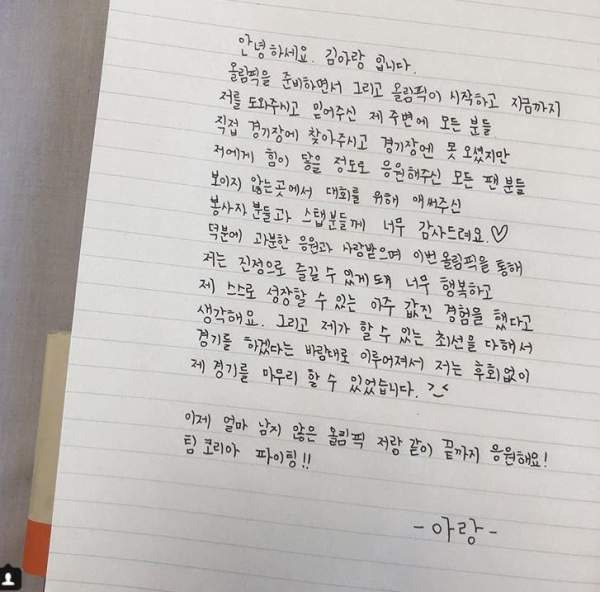 안녕하세요. 김아랑 입니다.
올림픽을 준비하면서 그리고 올림픽이 시작하고 지금까지
저를 도와주시고 믿어주신 제 주변에 모든 분들
직접 경기장에 찾아주시고 경기장엔 못 오셨지만
저에게 힘이 닿을 정도로 응원해주신 모든 팬 분들
보이지 않는곳에서 대회를 위해 애써주신
봉사자 분들과 스탭분들께 너무 감사드려요.♡
덕분에 과분한 응원과 사랑받으며 이번 올림픽을 통해
저는 진정으로 즐길 수 있게 돼 너무 행복하고
제 스스로 성장할 수 있는 아주 값진 경험을 했다고
생각해요. 그리고 제가 할 수 있는 최선을 다해서
경기를 하겠다는 바람대로 이루어져서 저는 후회없이
제 경기를 마무리 할 수 있었습니다. >.<
이제 얼마 남지 않은 올림픽 저랑 같이 끝까지 응원해요!
팀 코리아 파이팅!!
- 아랑 -